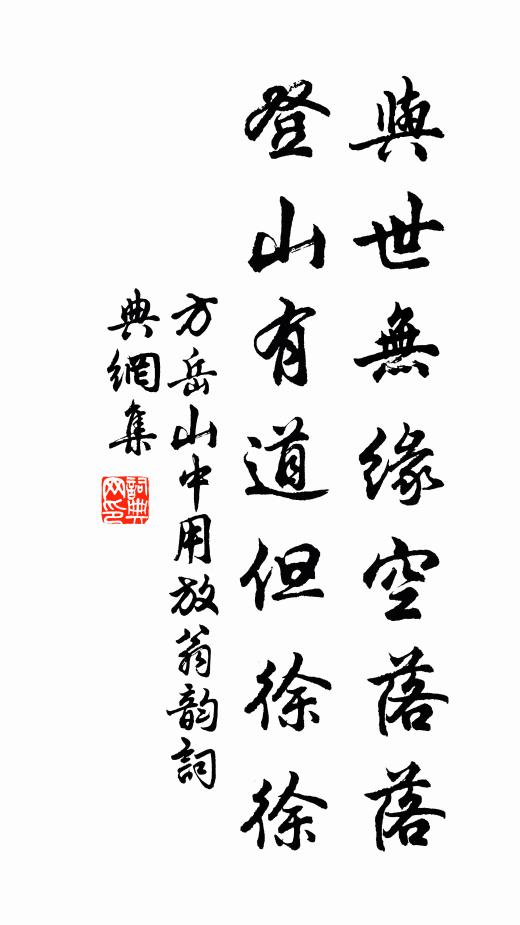 與世無緣空落落
登山有道但徐徐
方岳山中用放翁韵詞
典網集
詞典网印